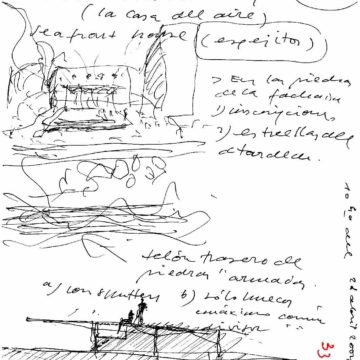 (la casa del aire)
Seafront house (espejitos)
> En las piedras
de la fachada
1) inscripciones
2) estrellas del
atardecer.
telón trasero de
piedras "armadas.
a) con shutters b) sólo hueca
máximo común
divisor "
33